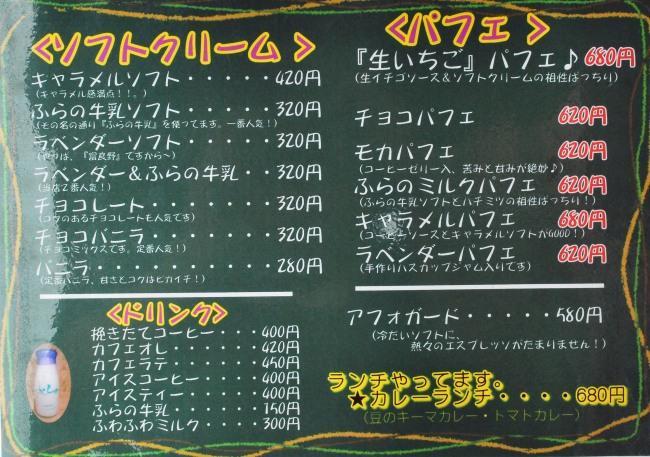 <ソフトクリーム>
キャラメルソフト・・・・・420円
(キャラメル感満点!!。)
ふらの牛乳ソフト・・・・・320円
(その名の通り『ふらの牛乳』を使ってます。一番人気!)
ラベンダーソフト・・・・・320円
(やっぱ、『富良野』ですから〜)
ラベンダー&ふらの牛乳・・320円
(当店2番人気!)
チョコレート・・・・・・・320円
(コクのあるチョコレートも人気です)
チョコバニラ・・・・・・・320円
(チョコミックスです。定番人気!)
バニラ・・・・・・・・・・280円
(定番バニラ、甘さとコクはピカイチ!)
<ドリンク>
挽きたてコーヒー・・・・400円
カフェオレ・・・・・・・420円
カフェラテ・・・・・・・450円
アイスコーヒー・・・・・400円
アイスティー・・・・・・400円
ふらの牛乳・・・・・・・150円
ふわふわミルク・・・・・300円
<パフェ>
『生いちご』パフェ♪ 680円
(生イチゴソース&ソフトクリームの相性ばっちり)
チョコパフェ 620円
モカパフェ 620円
(コーヒーゼリー入、苦みと甘みが絶妙♪)
ふらのミルクパフェ 620円
(ふらの牛乳ソフトとハチミツの相性ばっちり!)
キャラメルパフェ 680円
(コーヒーソースとキャラメルソフトがGOOD!)
ラベンダーパフェ 620円
(手作りハスカップジャム入りです)
アフォガード・・・・・580円
(冷たいソフトに、
熱々のエスプレッソがたまりません!)
ランチやってます。
★カレーランチ・・・・680円
(豆のキーマカレー・トマトカレー)